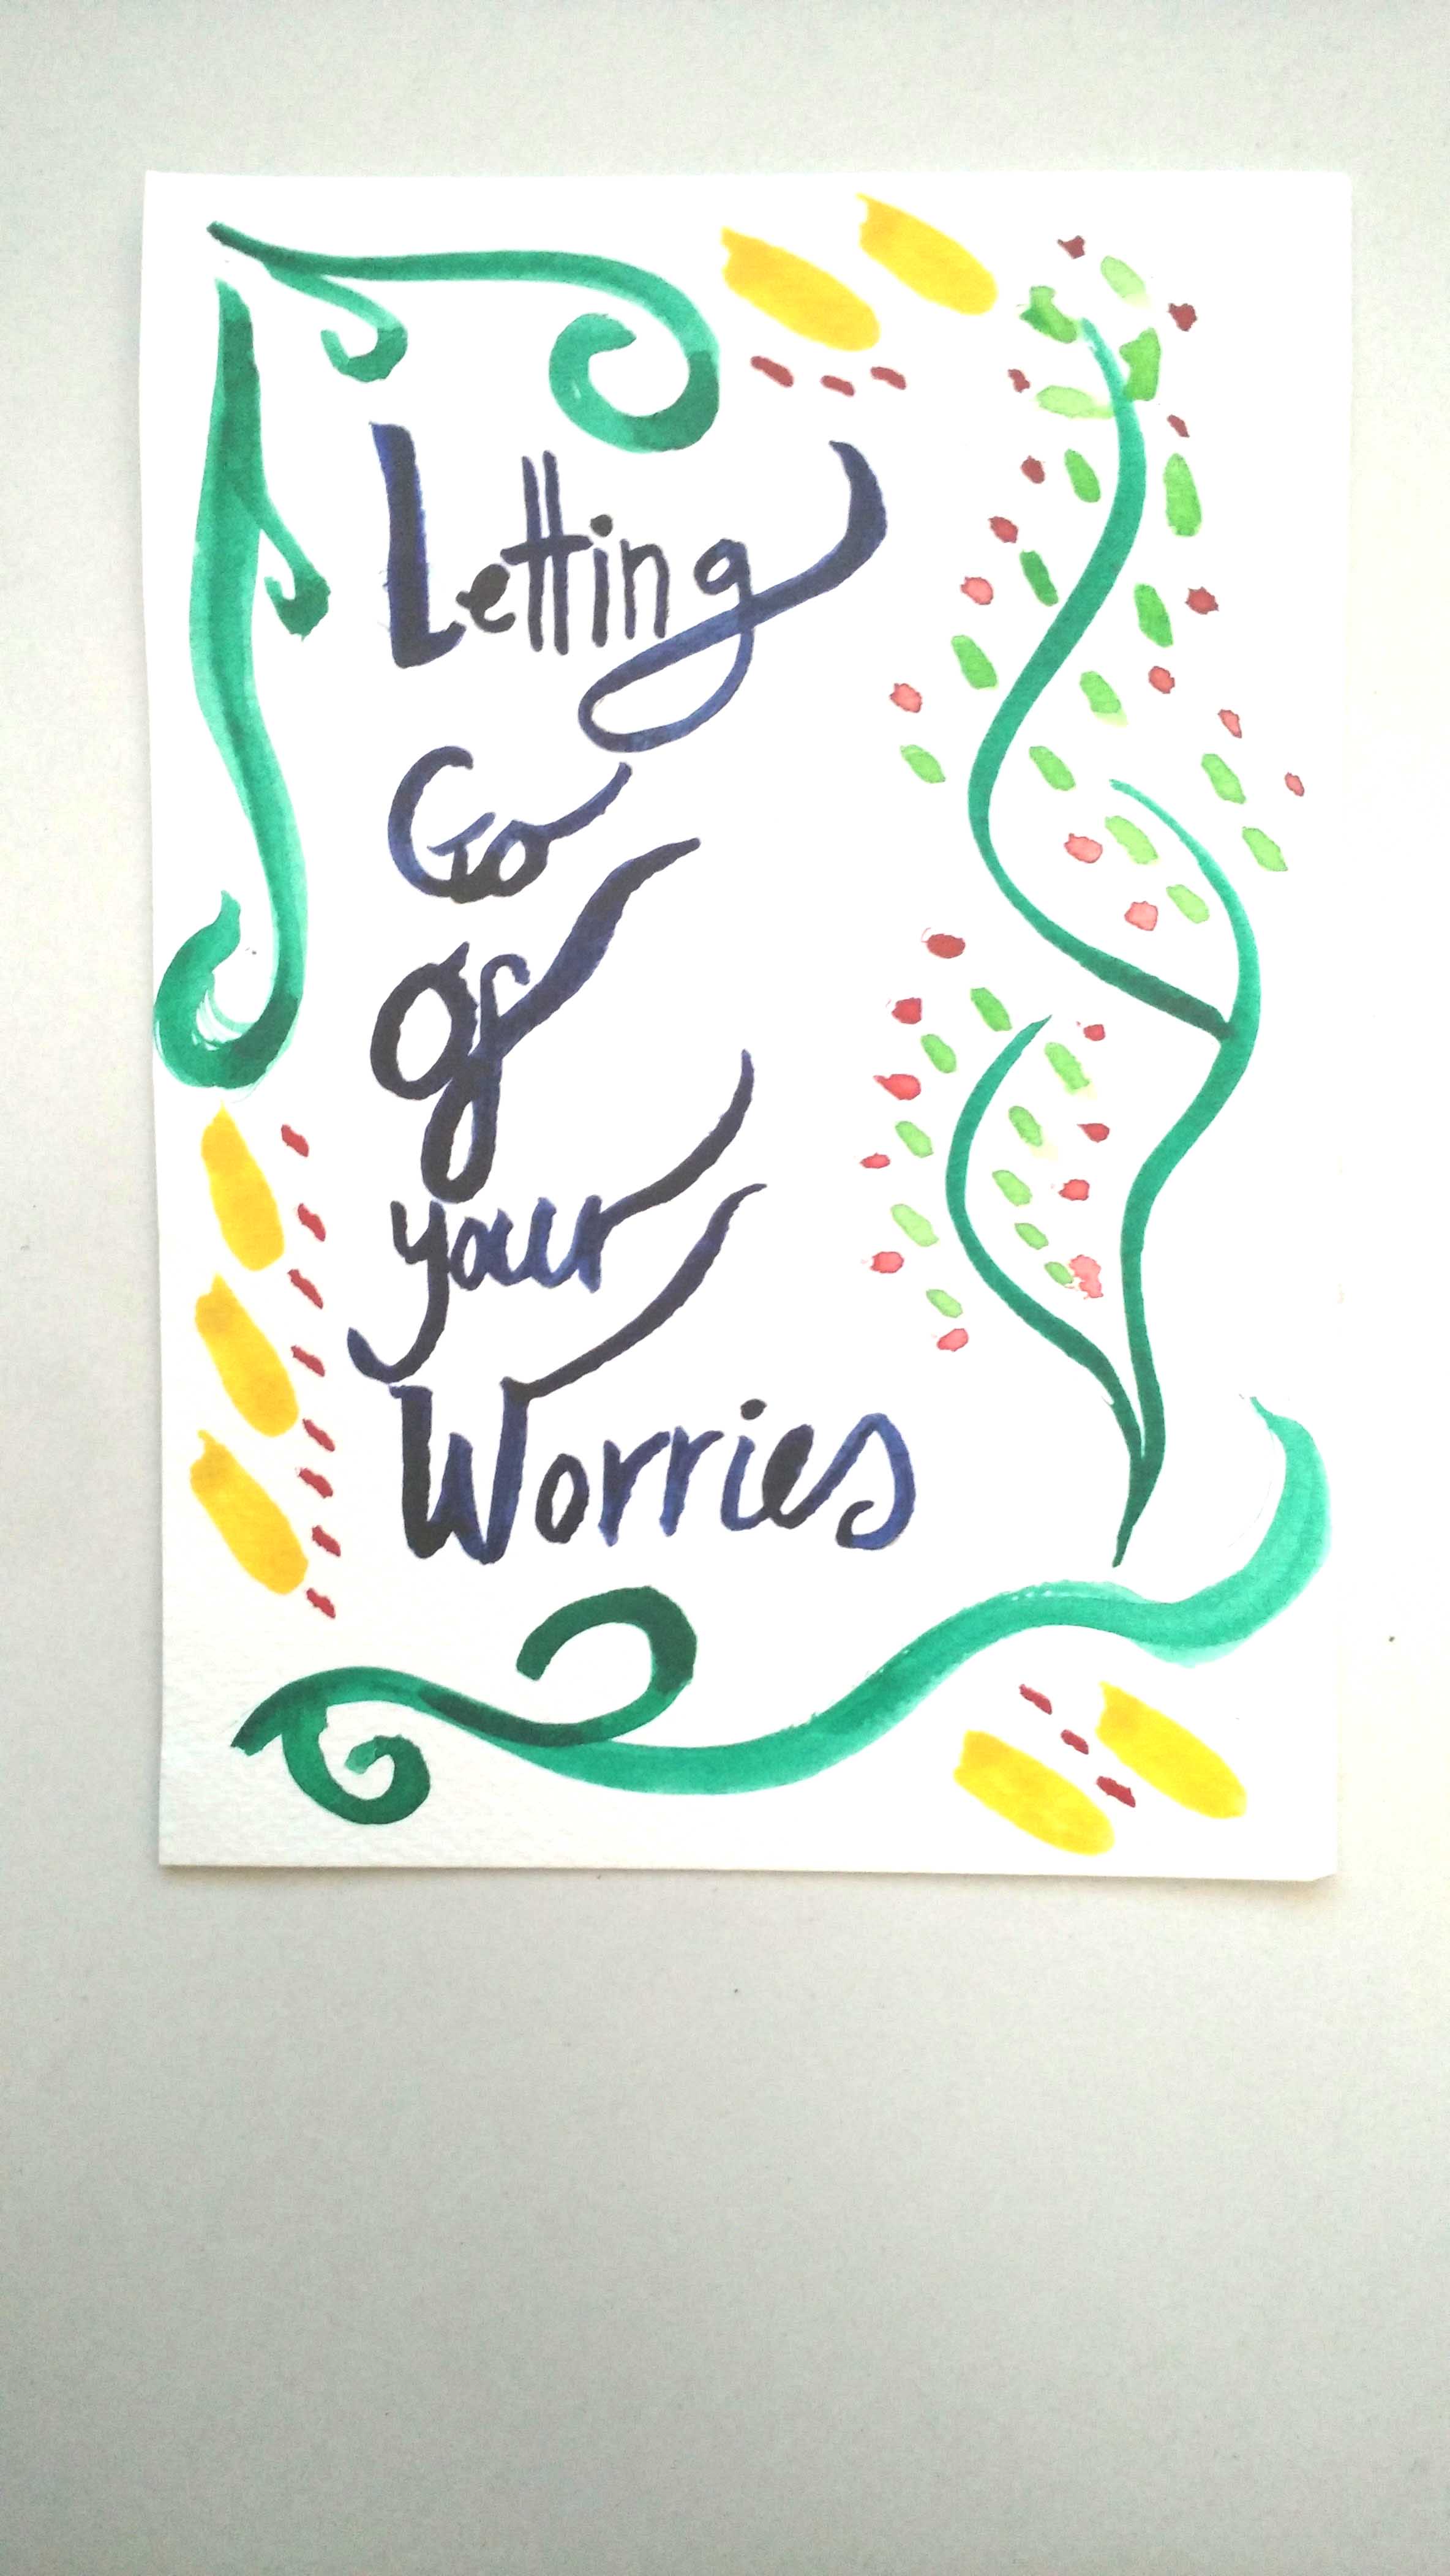 Letting
Go
of
your
Worries